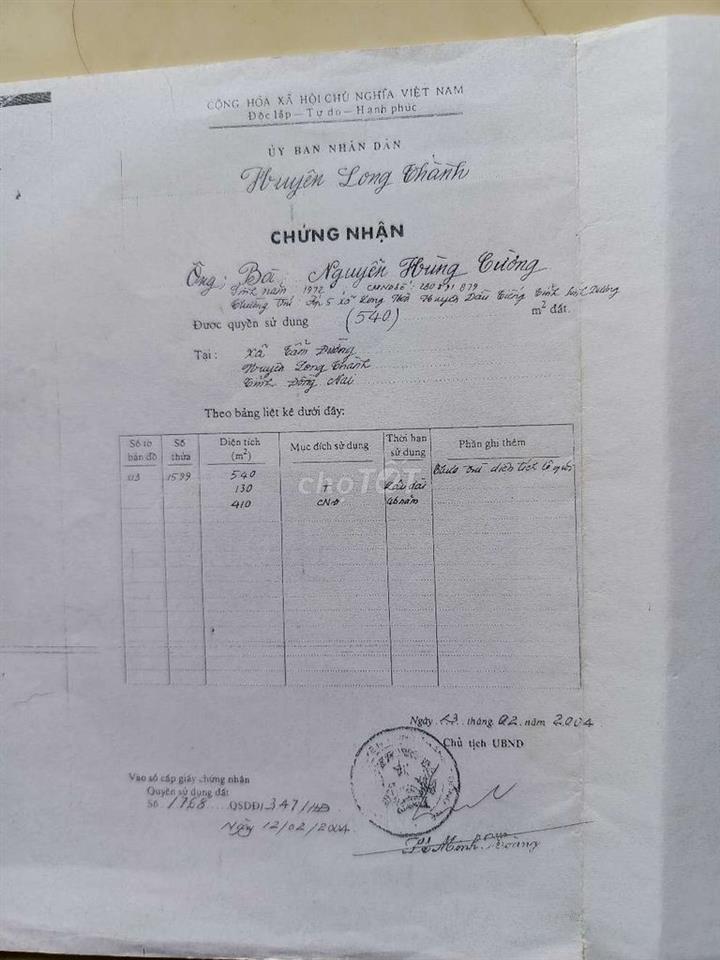 CỘNG HÒA XÃ HỘI CHỦ NGHĨA VIỆT NAM
Độc lập - Tự do - Hạnh phúc
ỦY BAN NHÂN DÂN
Huyện Long Thành
CHỨNG NHẬN
Ông, Bà Nguyễn Hùng Cường
Sinh năm 1972 CMND số: 280891079
Thường trú Ấp 5 xã Long Huyện Dầu Tiếng Tỉnh Bình Dương
Được quyền sử dụng (540) m² đất.
Tại: Xã
Huyện Long Thành
Tỉnh Đồng Nai
Theo bảng liệt kê dưới đây:
Số tờ bản đồ | Số thửa | Diện tích (m²) | Mục đích sử dụng | Thời hạn sử dụng | Phần ghi thêm
03 | 1599 | 540 | diện tích lộ giới
130 | T | Lâu dài
410 | 46 năm
chợTỐT
Ngày 13 tháng 02 năm 2004
Chủ tịch UBND
Vào sổ cấp giấy chứng nhận
Quyền sử dụng đất
Số 1768 QSDĐ/347/HĐ
Ngày 12/02/2004
Minh Hoàng